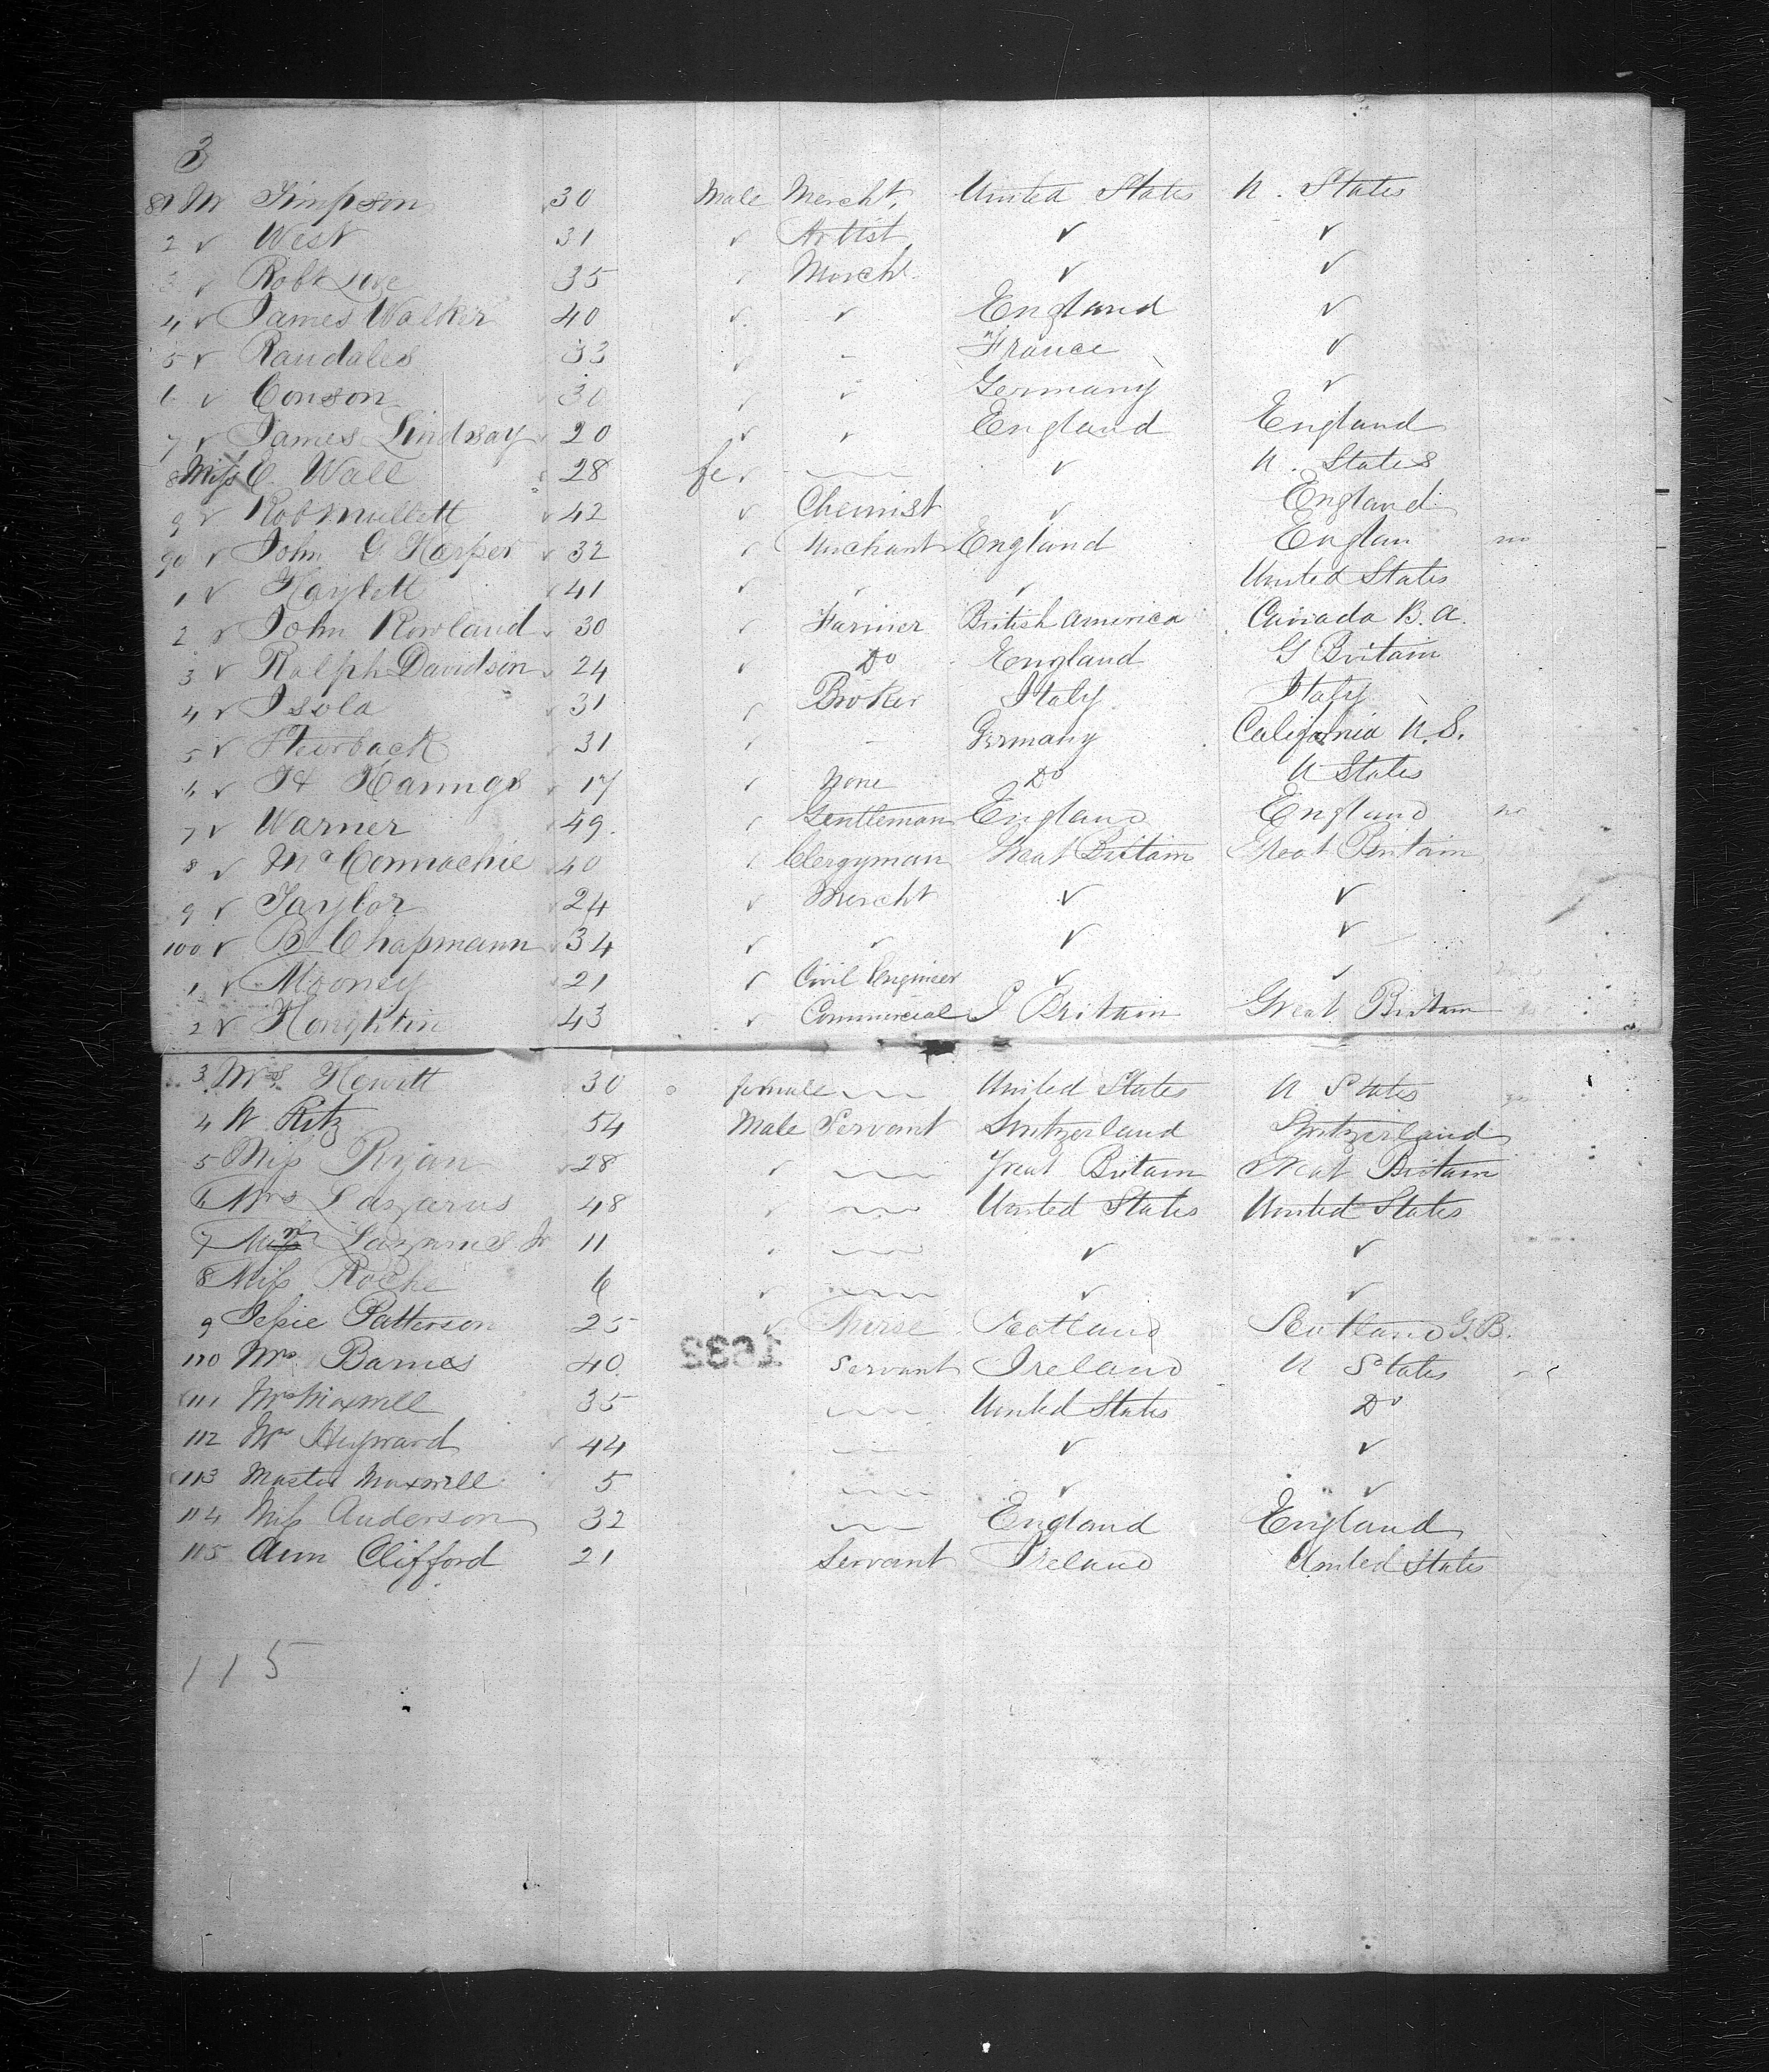 3
81 Mr Simpson 30 Male Mercht. United States U. States
2 ✓ West 31 ✓ Artist ✓ ✓
3 ✓ Robt Love 35 ✓ Mercht. ✓ ✓
4 ✓ James Walker 40 ✓ ✓ England ✓
5 ✓ Randales 33 ✓ - France ✓
6 ✓ Conson 30 ✓ ✓ Germany ✓
7 ✓ James Lindsay 20 ✓ ✓ England England
8 Miss C. Wall 28 fe ✓ ✓ U. States
9 ✓ Rob Mullett ✓ 42 ✓ Chemist ✓ England
90 ✓ John G. Harper ✓ 32 ✓ Merchant England Englan
1 ✓ Haylett ✓ 41 ✓ ✓ ✓ United States
2 ✓ John Rowland ✓ 30 ✓ Farmer British America Canada B.A.
3 ✓ Ralph Davidson ✓ 24 ✓ Do England G Britain
4 ✓ Isola ✓ 31 ✓ Broker Italy Italy
5 ✓ ✓ 31 ✓ - Germany California U.S.
6 ✓ H ✓ 17 ✓ None Do U States
7 ✓ Warner ✓ 49. ✓ Gentleman England England no
8 ✓ McConnachie ✓ 40 ✓ Clergyman Great Britain Great Britain
9 ✓ Taylor ✓ 24 ✓ Mercht ✓ ✓
100 ✓ B. Chapmann ✓ 34 ✓ ✓ ✓ ✓
1 ✓ Mooney ✓ 21 ✓ Civil Engineer ✓ ✓
2 ✓ Houghtin ✓ 43 ✓ Commercial G Britain Great Britain
3 Mrs. Hewitt 30 female United States U States
4 N Ritz 54 Male Servant Switzerland Switzerland
5 Miss Ryan 28 ✓ Great Britain Great Britain
6 Mrs Lazarus 48 ✓ United States United States
7 Lazarus Jr 11 ✓ ✓ ✓
8 Miss Roche 6 ✓ ✓ ✓
9 Jessie Patterson 25 ✓ Nurse Scotland Scotland G.B.
1633
110 Mrs. Barnes 40 Servant Ireland U States
111 Mrs Maxwell 35 United States Do
112 Mr Heyward ✓ 44 ✓ ✓
113 Master Maxwell 5 ✓ ✓
114 Miss Anderson 32 England England
115 Ann Clifford 21 Servant Ireland United States
115